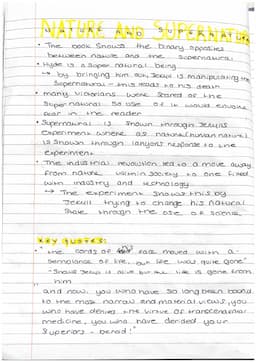 NATURE AND SUPERNATURAL
• The book shows the binary opposites
between nature and the supernatural
• Hyde is a super natural being
↳ by bringing him out, Jekyll is manipulating the
supernatural - this leads to his death
• many Victorians were scared of the
super natural so use of it would envoke
fear in the reader
• Supernatural is shown through Jekylls
Experiment where as nature/human nature
is shown through lanyons response to the
experiment
• The industrial revolution led to a move away
from nature within society to one fixed
with industry and technology
→ The experiment shows this by
Jekyll trying to change his natural
State through the use of science
Key quotes:
" the cords of face moved with a
semblance of life, but life was quite gone"
- Shows Jekyll is alive but the life is gone from
him
and now, you who have so long been bound
to the most narrow and material views, you
who have denied the virtue of transcendental
medicine, you who have derided your
Superiors - behold!"